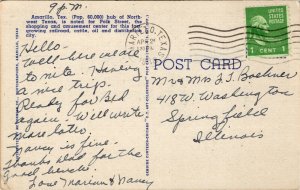 9 p.m.
Amarillo, Tex. (Pop. 60,000) hub of North-
west Texas, is noted for Polk Street, the
shopping and amusement center for this fast
growing railroad, cattle, oil and distribution
city.
Hello -
Well here we are
to nite. Having
a nice trip.
Ready for Bed
again. Will write
more later
Nancy is fine.
Thanks Dad for the
Good
Love Marion & Nancy
POST CARD
1 CENT 1
Mr and Mrs J. G. Boehner
418 W. Washington
Springfield
Illinois